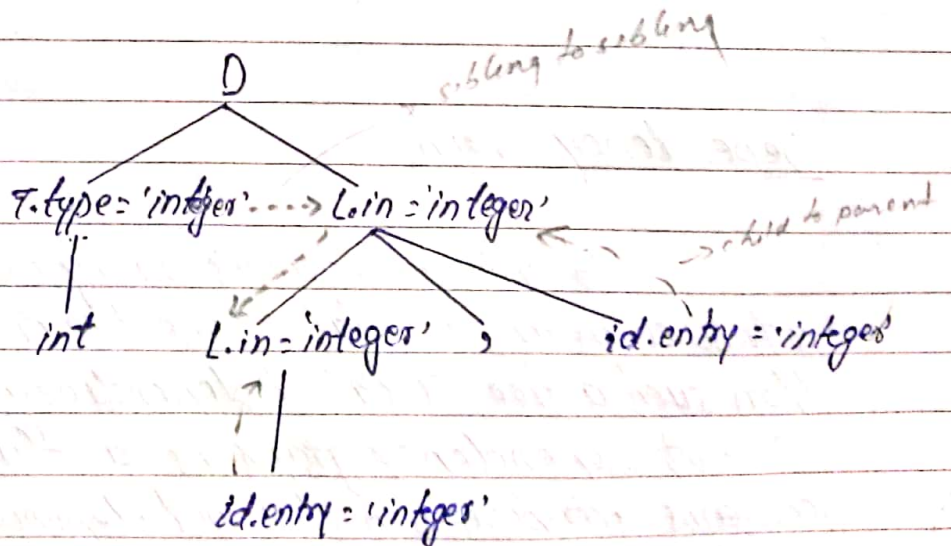 sibling to sibling
D
T.type = 'integer' L.in = 'integer'
child to parent
int L.in = 'integer' , id.entry = 'integer'
id.entry = 'integer'